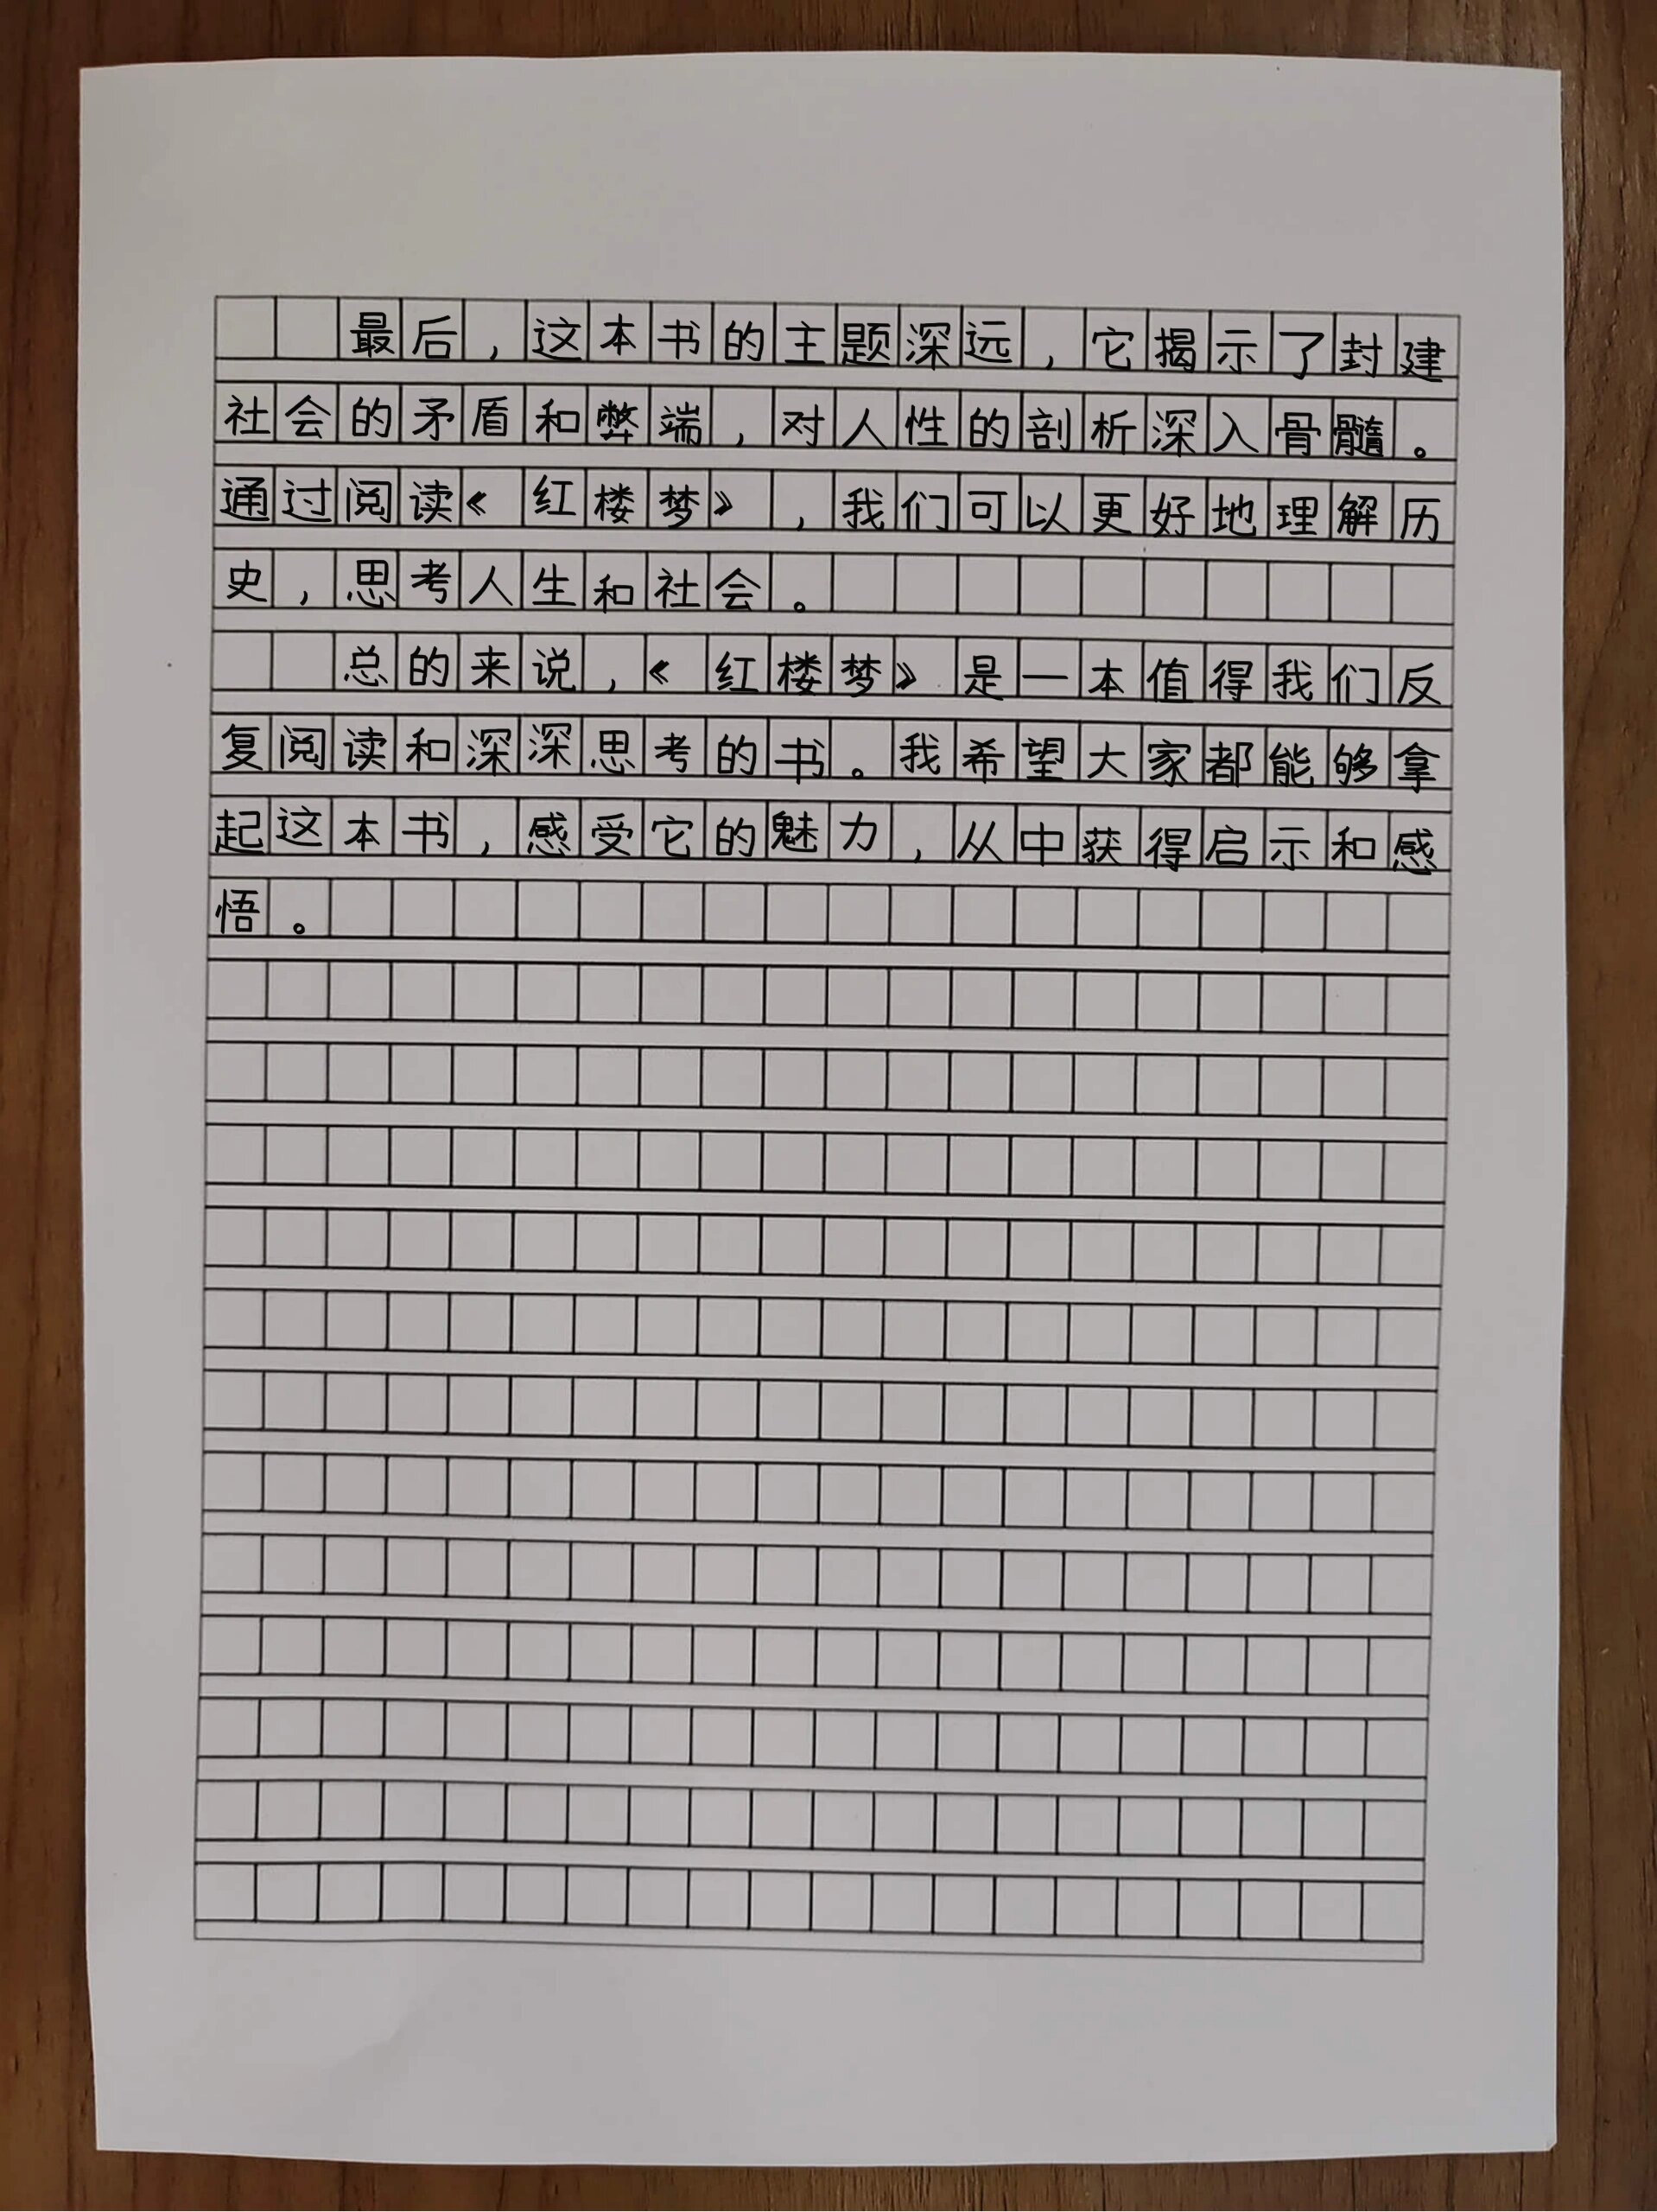 最后，这本书的主题深远，它揭示了封建
社会的矛盾和弊端，对人性的剖析深入骨髓。
通过阅读《红楼梦》，我们可以更好地理解历
史，思考人生和社会。
总的来说，《红楼梦》是一本值得我们反
复阅读和深深思考的书。我希望大家都能够拿
起这本书，感受它的魅力，从中获得启示和感
悟。